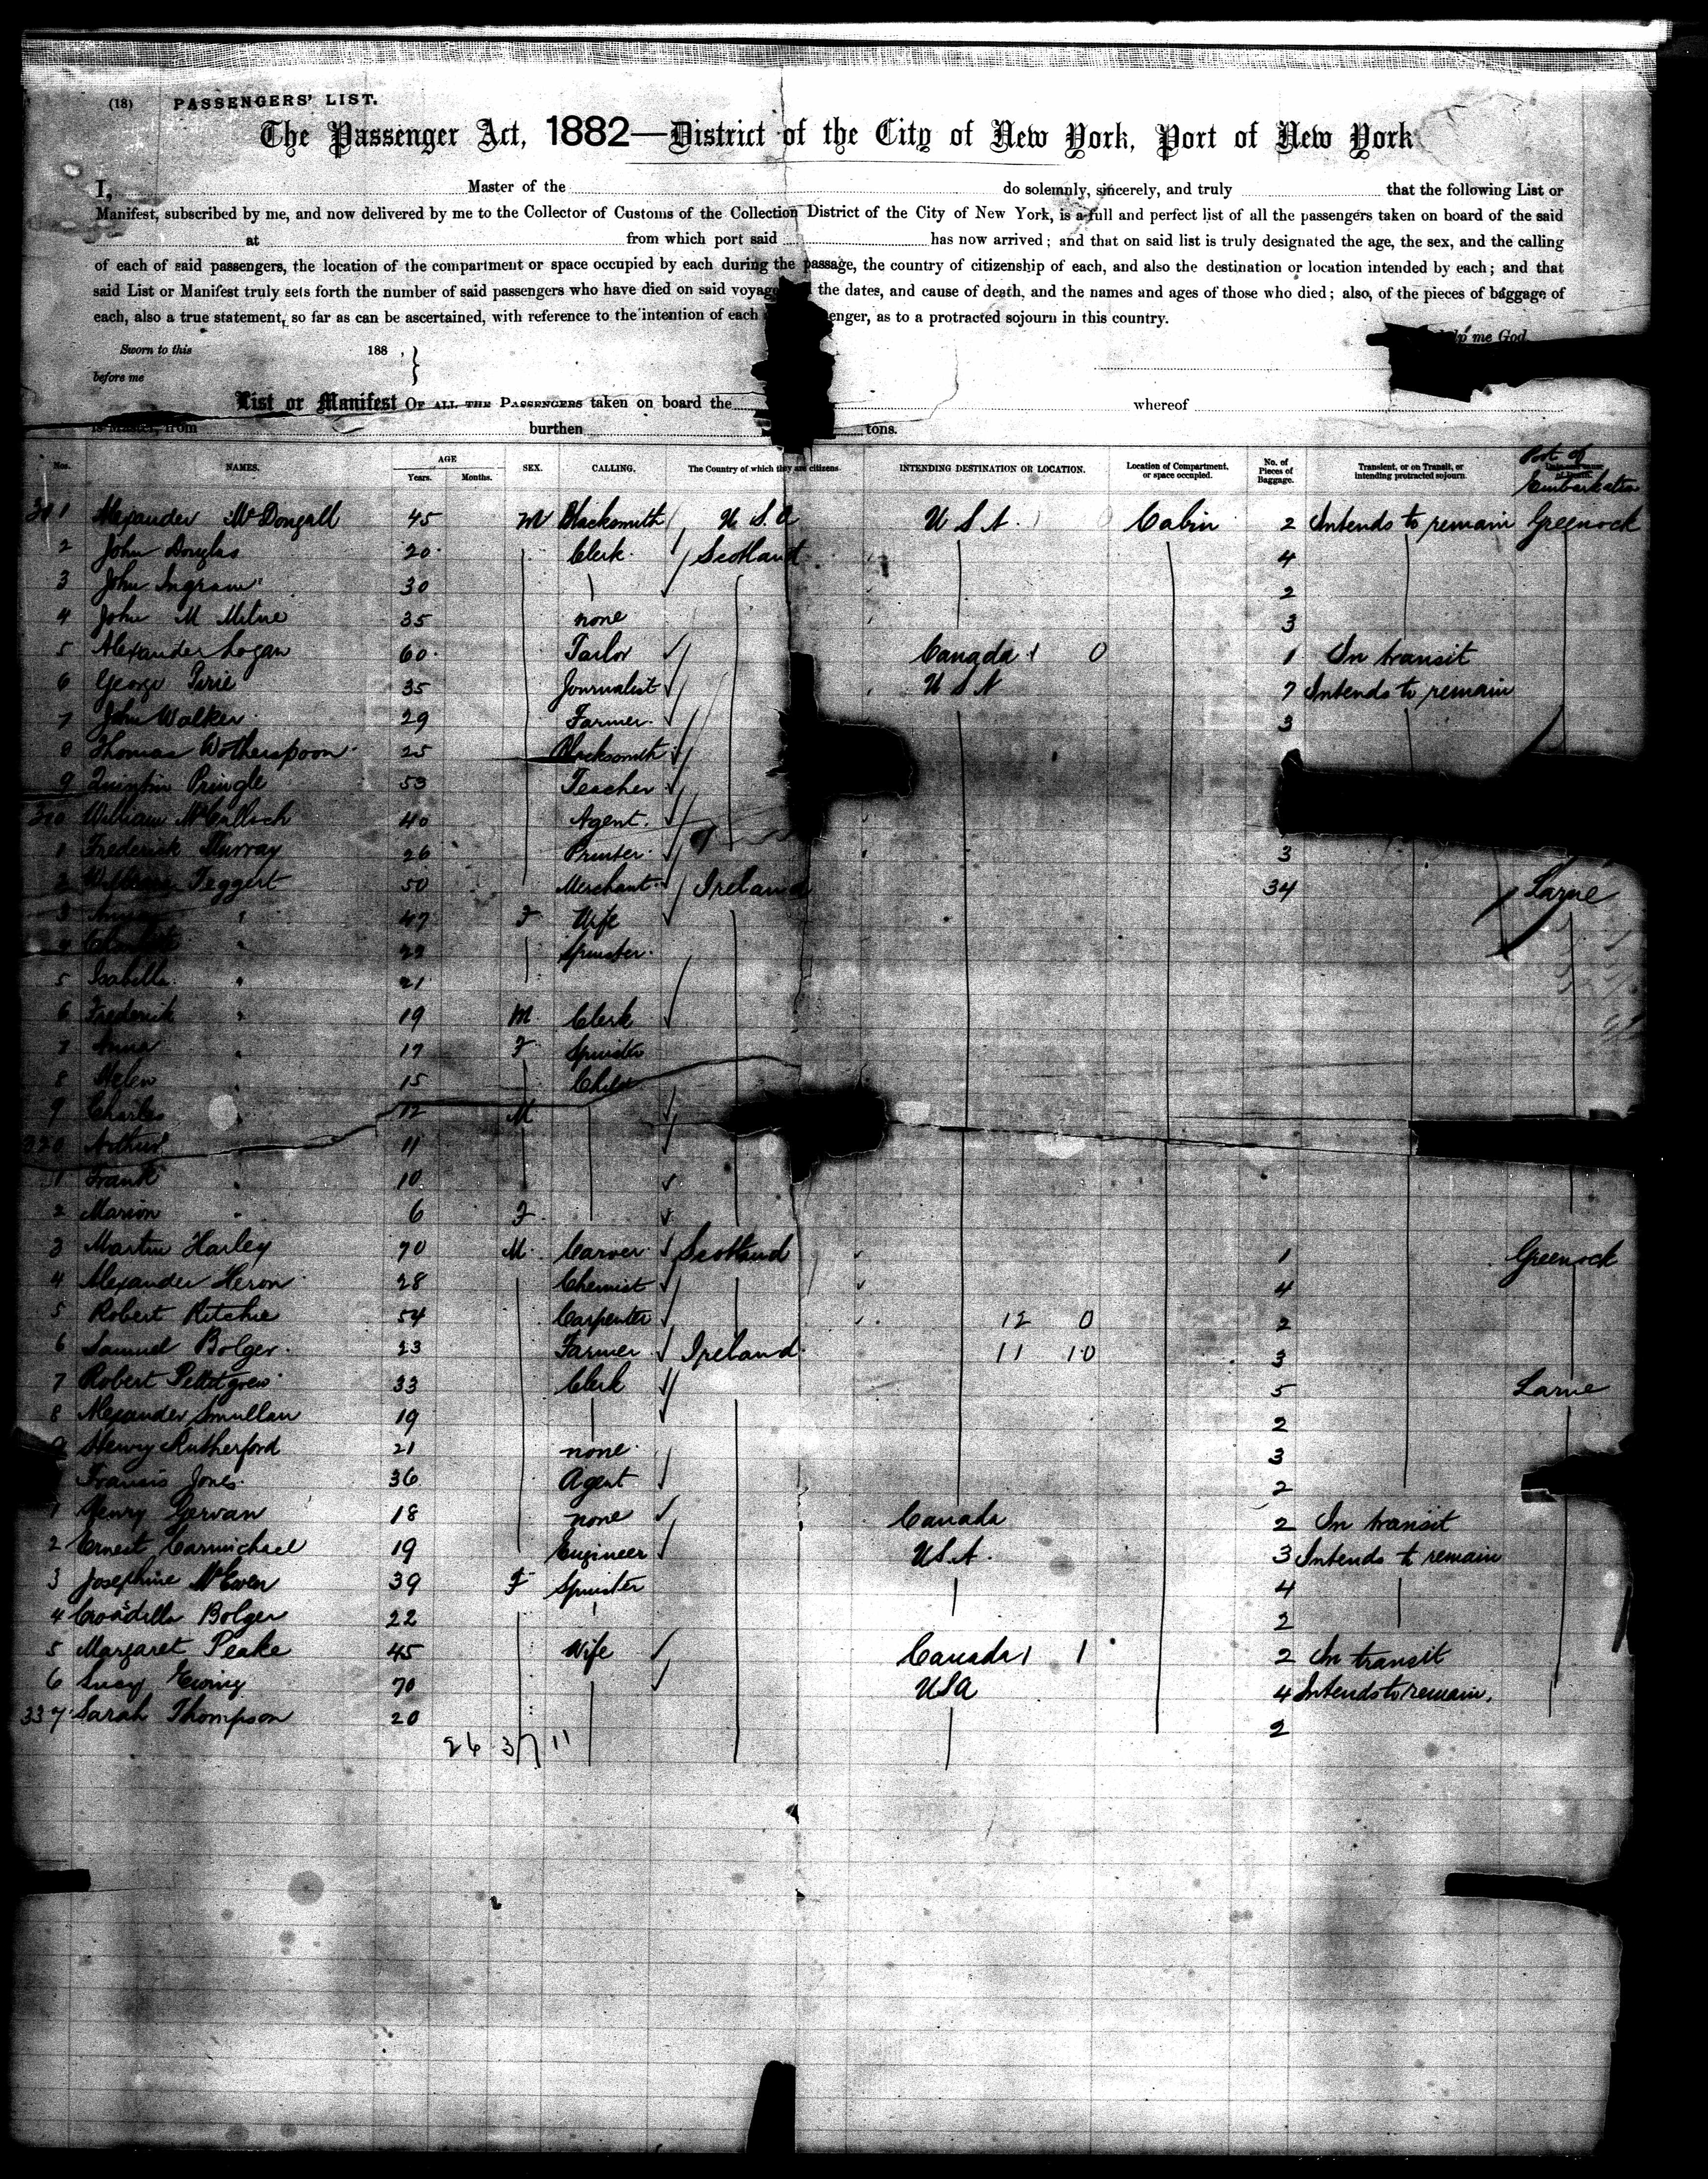 (18) PASSENGERS' LIST.
The Passenger Act, 1882—District of the City of New York, Port of New York
I, Master of the do solemnly, sincerely, and truly that the following List or
Manifest, subscribed by me, and now delivered by me to the Collector of Customs of the Collection District of the City of New York, is a full and perfect list of all the passengers taken on board of the said
at from which port said has now arrived; and that on said list is truly designated the age, the sex, and the calling
of each of said passengers, the location of the compartment or space occupied by each during the passage, the country of citizenship of each, and also the destination or location intended by each; and that
said List or Manifest truly sets forth the number of said passengers who have died on said voyage the dates, and cause of death, and the names and ages of those who died; also, of the pieces of baggage of
each, also a true statement, so far as can be ascertained, with reference to the intention of each enger, as to a protracted sojourn in this country.
lp me God
Sworn to this 188 , }
before me
List or Manifest OF ALL THE PASSENGERS taken on board the whereof
is Master, from burthen tons.
Nos. NAMES. AGE Years. Months. SEX. CALLING. The Country of which they are citizens. INTENDING DESTINATION OR LOCATION. Location of Compartment, or space occupied. No. of Pieces of Baggage. Transient, or on Transit, or intending protracted sojourn. Port of Embarkation
301 Alexander McDongall 45 M Blacksmith U.S.A U S A. Cabin 2 Intends to remain Greenock
2 John Douglas 20 Clerk Scotland 4
3 John Ingram 30 2
4 John M Milne 35 none 3
5 Alexander Logan 60 Tailor Canada 1 0 1 In transit
6 George Pirie 35 Journalist U S A 7 Intends to remain
7 John Walker 29 Farmer 3
8 Thomas Wotherspoon 25 Blacksmith
9 Quintin Pringle 53 Teacher
310 William McCulloch 40 Agent
1 Frederick Murray 26 Printer 3
2 William Teggert 50 Merchant Ireland 34 Larne
3 " 47 F Wife
4 " 22 Spinster
5 Isabella " 21
6 Frederick " 19 M Clerk
7 Anna " 17 F Spinster
8 Helen " 15 Child
9 Charles " 12 M
320 Arthur 11
1 Frank " 10
2 Marion " 6 F
3 Martin Harley 70 M Carver Scotland 1 Greenock
4 Alexander Heron 28 Chemist 4
5 Robert Ritchie 54 Carpenter 12 0 2
6 Samuel Bolger 23 Farmer Ireland 11 10 3
7 Robert Pettigrew 33 Clerk 5 Larne
8 Alexander Smullan 19 2
9 Henry Rutherford 21 none 3
Francis Jones 36 Agent 2
1 Henry Gervan 18 none Canada 2 In transit
2 Ernest Carmichael 19 Engineer U.S.A. 3 Intends to remain
3 Josephine McEwen 39 F Spinster 4
4 Bolger 22 2
5 Margaret Peake 45 Wife Canada 1 1 2 In transit
6 Ewing 70 USA 4 Intends to remain
337 Sarah Thompson 20 2
26 3/7 11